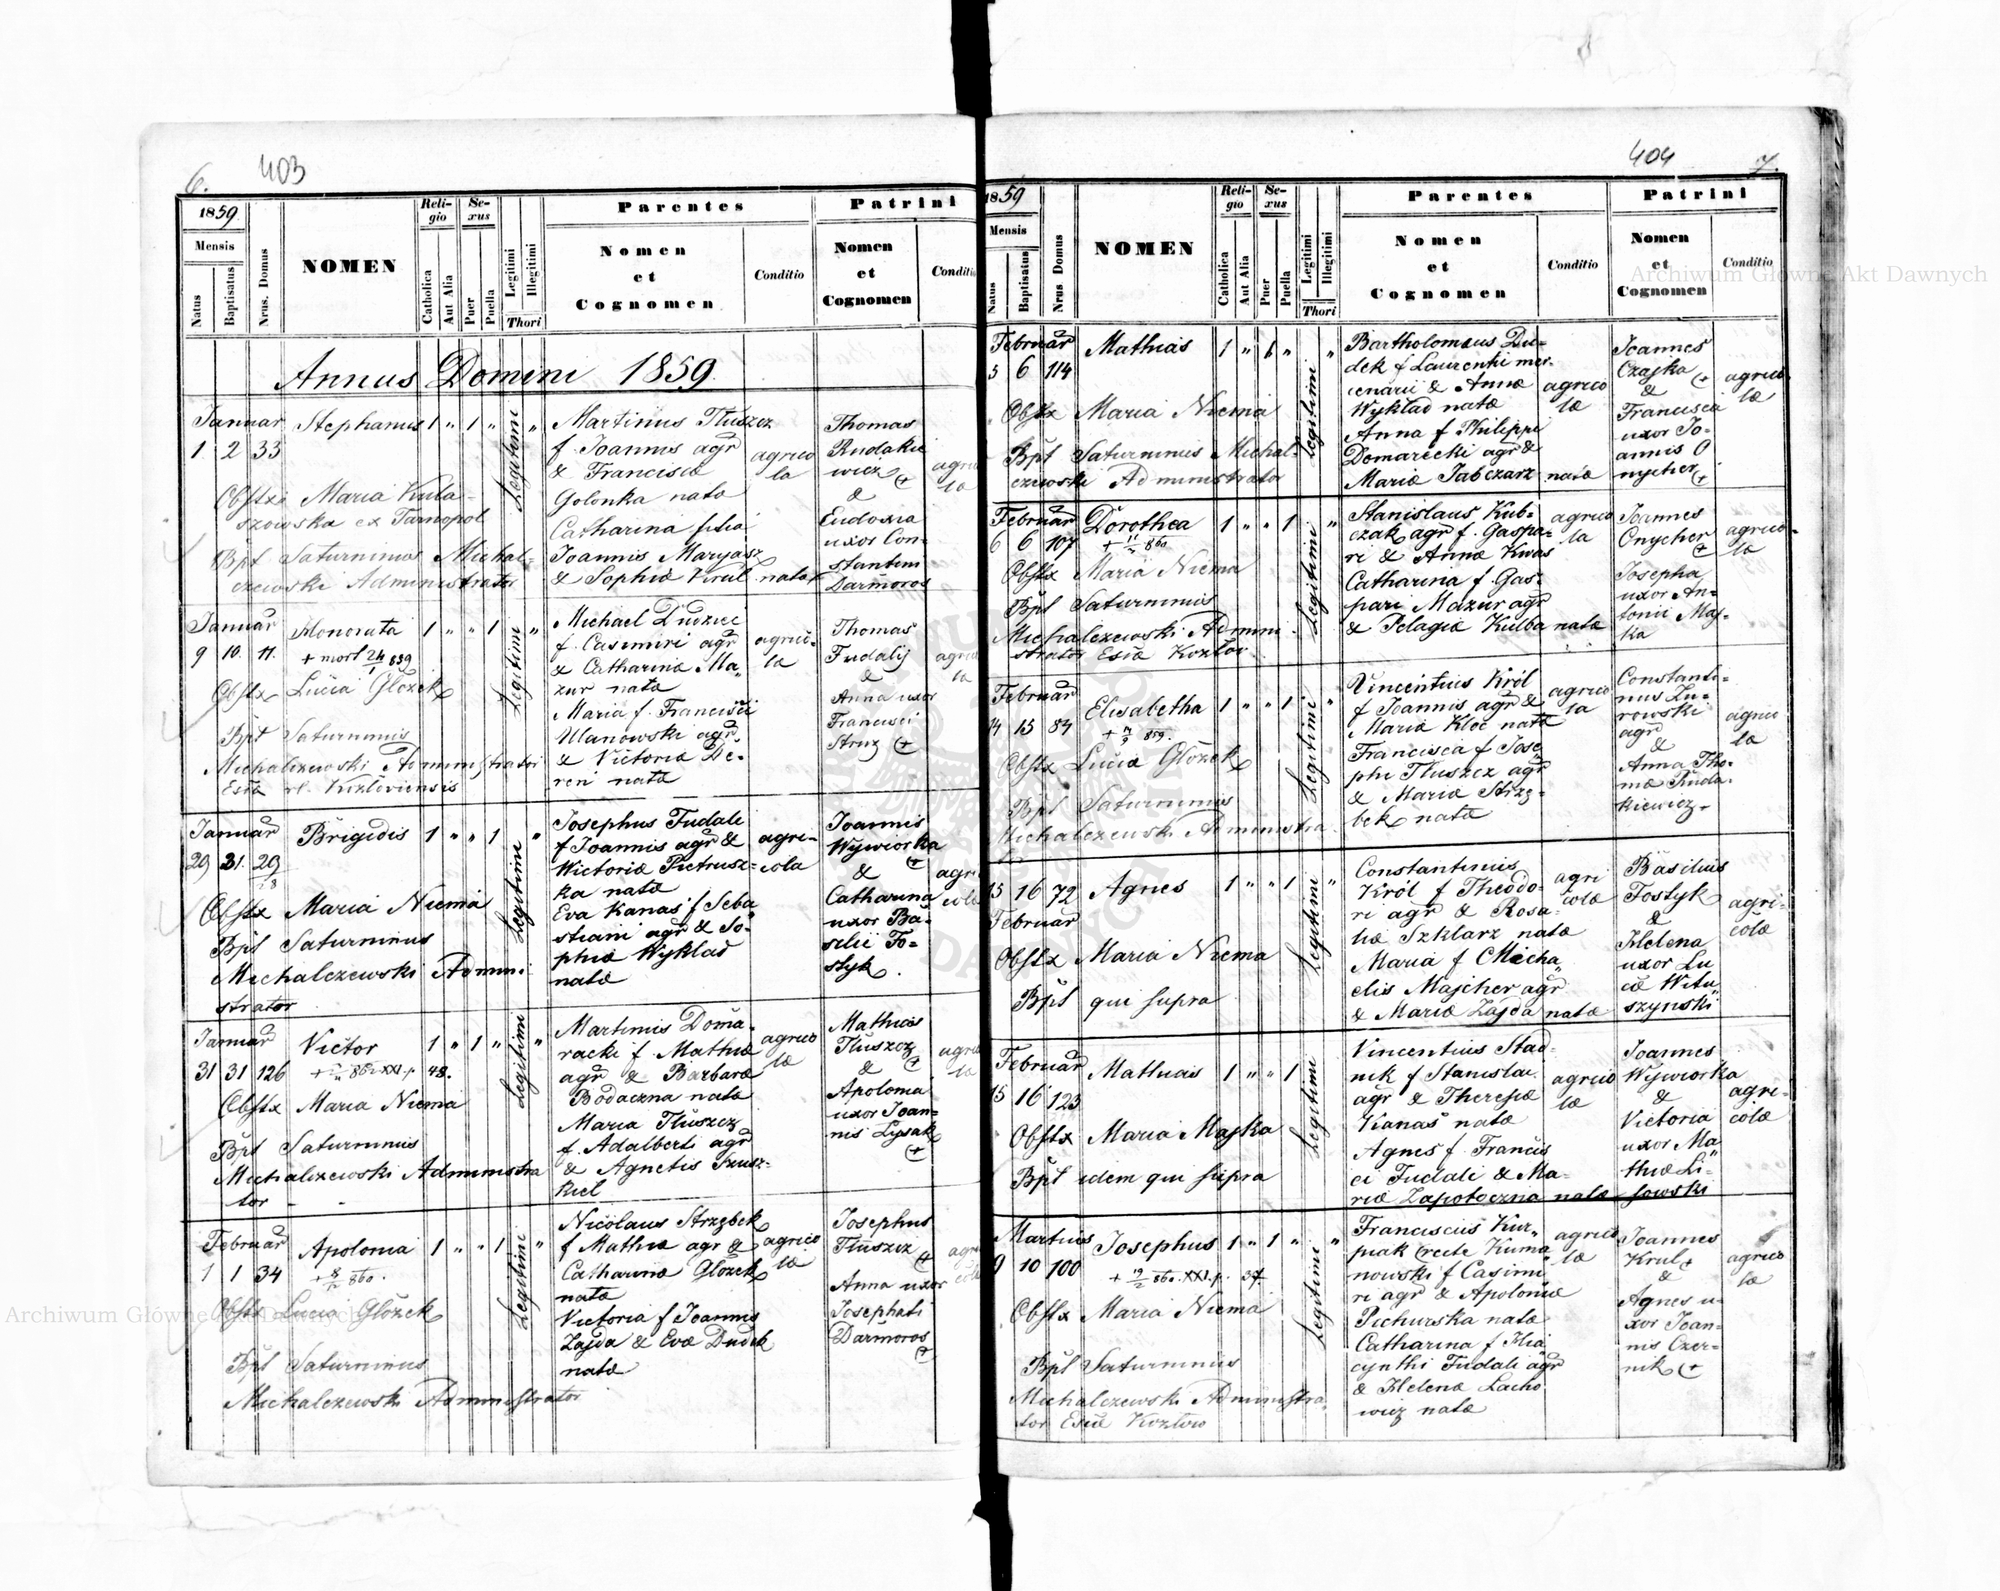 6.
403
1859.
Mensis
Natus
Baptisatus
Nrus. Domus
NOMEN
Religio
Catholica
Aut Alia
Sexus
Puer
Puella
Legitimi
Illegitimi
Thori
Parentes
Nomen
et
Cognomen
Conditio
Patrini
Nomen
et
Cognomen
Annus Domini 1859.
Januar Stephanus 1 " 1 " Legitimi "
1 2 33
Obstx Maria Kula-
szowska ex Tarnopol
Bpt Saturninus Michal-
czewski Administrator
Martinus Tłuszcz
f. Joannis agr
& Francisca
Golonka nata
Catharina filia
Joannis Maryasz
& Sophia Krul nata
agrico
la
Thomas
Rudakie
wicz +
&
Eudoxia
uxor Con-
stantini
Darmoros
Januar Honorata 1 " " 1 Legitimi "
9 10. 11. + mort 24/1 859
Obstx Lucia Głozek
Bpt Saturninus
Michalczewski Administrator
Michael Dudzic
f. Casimiri agr
& Catharina Ma-
zur nata
Maria f. Francisci
Ulanowski agr.
& Victoria De-
reń nata
agrico-
la
Thomas
Fudalij
&
Anna uxor
Francisci
Struz +
Januar Brigidis 1 " " 1 Legitimi "
29 31. 29
Obstx Maria Niema
Bpt Saturninus
Michalczewski Admini
strator
Josephus Fudali
f Joannis agr &
Wictoria Pietrusz-
ka nata
Eva Kanas f Seba
stiani agr & So-
phia Wyklad
nata
agri-
cola
Joannis
Wywiorka
+
&
Catharina
uxor Ba-
silii To-
styk.
Januar Victor 1 " 1 " Legitimi "
31 31 126
Obstx Maria Niema
Bpt Saturninus
Michalczewski Administra
tor
Martinus Doma-
racki f. Mathia
agr & Barbara
Bodaczna nata
Maria Tłuszcz
f. Adalberti agr
& Agnetis Szusz-
kiel
agrico
la
Mathias
Tłuszcz
& +
Apolonia
uxor Joan-
nis Lysak
+
Februar Apolonia 1 " " 1 Legitimi "
1 1 34
Obstx Lucia Głozek
Bpt Saturninus
Michalczewski Administrator
Nicolaus Strzębek
f Mathia agr &
Catharina Głozek
nata
Victoria f Joannis
Zajda & Eva Dudek
nata
agrico
la
Josephus
Tłuszcz
+
Anna uxor
Josephati
Darmoros
+
404
7.
1859
Mensis
Natus
Baptisatus
Nrus Domus
NOMEN
Religio
Catholica
Aut Alia
Sexus
Puer
Puella
Legitimi
Illegitimi
Thori
Parentes
Nomen
et
Cognomen
Conditio
Patrini
Nomen
et
Cognomen
Conditio
Februar Mathias 1 " " Legitimi "
5 6 114
Obstx Maria Niema
Bpt Saturninus Michal-
czewski Administrator
Bartholomaus Du-
dek f Laurentii mer-
cenarii & Anna
Wyklad nata
Anna f Philippi
Domarecki agr &
Maria Jabczarz nata
agrico
la
Joannes
Czajka
& +
Francisca
uxor Jo-
annis O
nycher +
agrico-
la
Februar Dorothea 1 " " 1 Legitimi "
6 6 107
Obstx Maria Niema
Bpt Saturninus
Michalczewski Admini-
strator Esia Kozłov
Stanislaus Kub-
czak agr f. Gaspa-
ri & Anna Kwas
Catharina f. Gas-
pari Mazur agr
& Pelagia Kulba nata
agrico
la
Joannes
Onycher
+
Josepha
uxor An-
tonii Maj-
ka
agrico-
la
Februar Elisabetha 1 " " 1 Legitimi "
14 15 84
Obstx Lucia Głozek
Bpt Saturninus
Michalczewski Administra
Vincentius Król
f Joannis agr &
Maria Kloc nata
Francisca f Jose
phi Tłuszcz agr
& Maria Strzę-
bek nata
agrico
la
Constanti-
nus Zu-
rowski
agr
&
Anna Tho-
ma Ruda-
kiewicz
agrico
la
15 16 72 Agnes 1 " " 1 Legitimi "
Februar
Obstx Maria Niema
Bpt qui supra
Constantinus
Król f Theodo-
ri agr & Rosa-
lia Szklarz nata
Maria f Micha
elis Majcher agr
& Maria Zajda nata
agri
cola
Basilius
Tostyk
&
Helena
uxor Lu
ca Witu
szynski
agri-
cola
Februar Mathias 1 " " 1 Legitimi
15 16 123
Obstx Maria Majka
Bpt idem qui supra
Vincentius Stad-
nik f Stanislai
agr & Theresia
Kanas nata
Agnes f Francis
ci Fudali & Ma-
ria Zapotoczna nata
agrico
la
Joannes
Wywiorka
&
Victoria
uxor Ma
thia Li-
sowski
agri-
cola
Martius Josephus 1 " 1 " Legitimi "
9 10 100
Obstx Maria Niema
Bpt Saturninus
Michalczewski Administra-
tor Esia Kozłow
Franciscus Kur-
piak recte Kuma
nowski f Casimi
ri agr & Apolonia
Pichurska nata
Catharina f Hia
cynthi Fudali agr
& Helena Lacho
wicz nata
agrico
la
Joannes
Krul +
&
Agnes u-
xor Joan-
nis Czer-
nik +
agrico
la
Archiwum Główne Akt Dawnych
Archiwum Główne Akt Dawnych